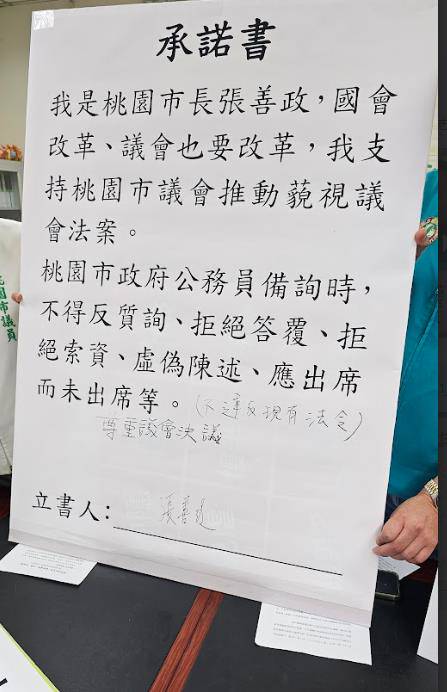 承諾書
我是桃園市長張善政，國會
改革、議會也要改革，我支
持桃園市議會推動藐視議
會法案。
桃園市政府公務員備詢時，
不得反質詢、拒絕答覆、拒
絕索資、虛偽陳述、應出席
而未出席等。(不違反現有法令)
尊重議會決議
立書人：張善政
桃園市議員